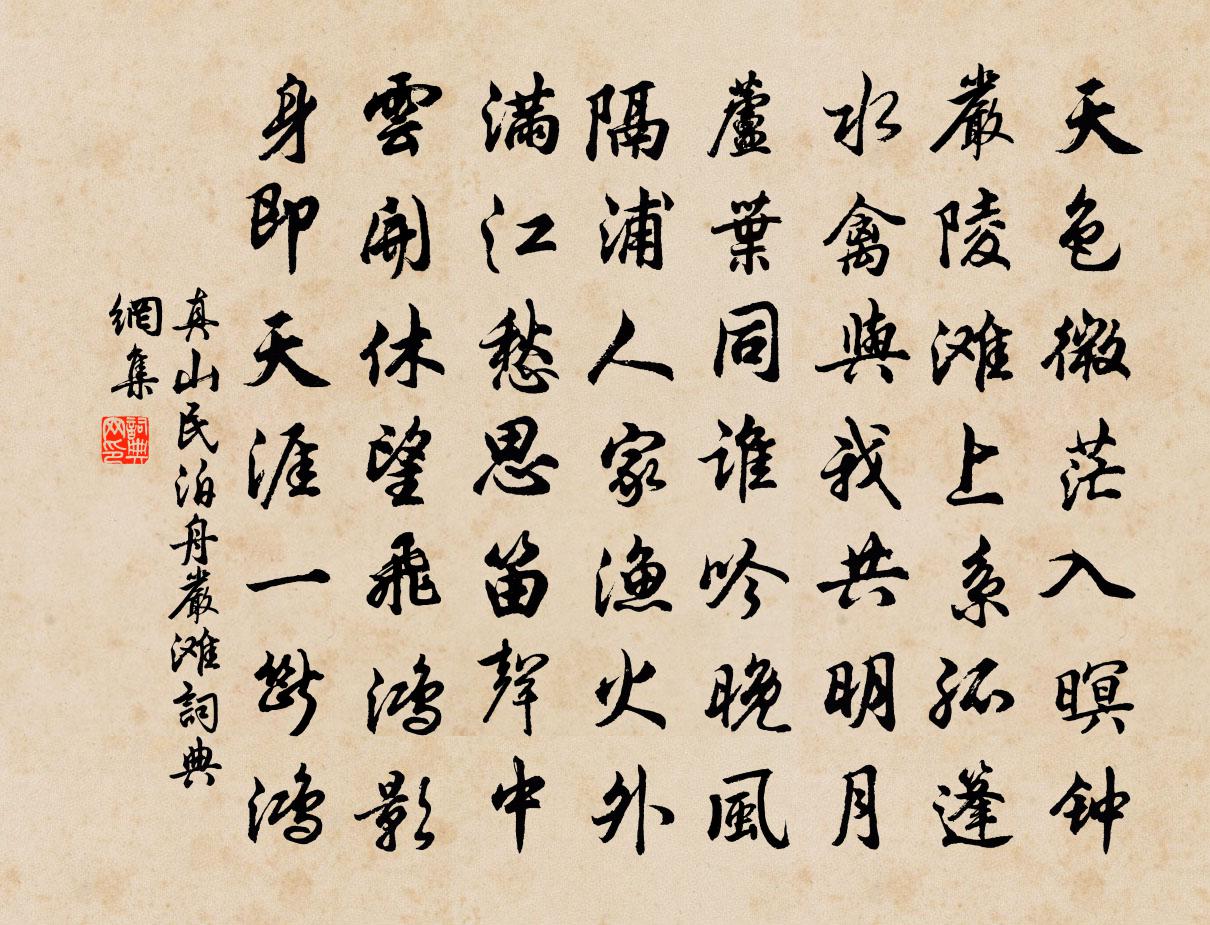 天色微茫入暝钟
嚴陵滩上系孤篷
水禽與我共明月
蘆葉同誰吟晚風
隔浦人家漁火外
满江愁思笛聲中
雲開休望飛鴻影
身即天涯一斷鴻
真山民泊舟嚴滩詞典
網集
詞典
网印